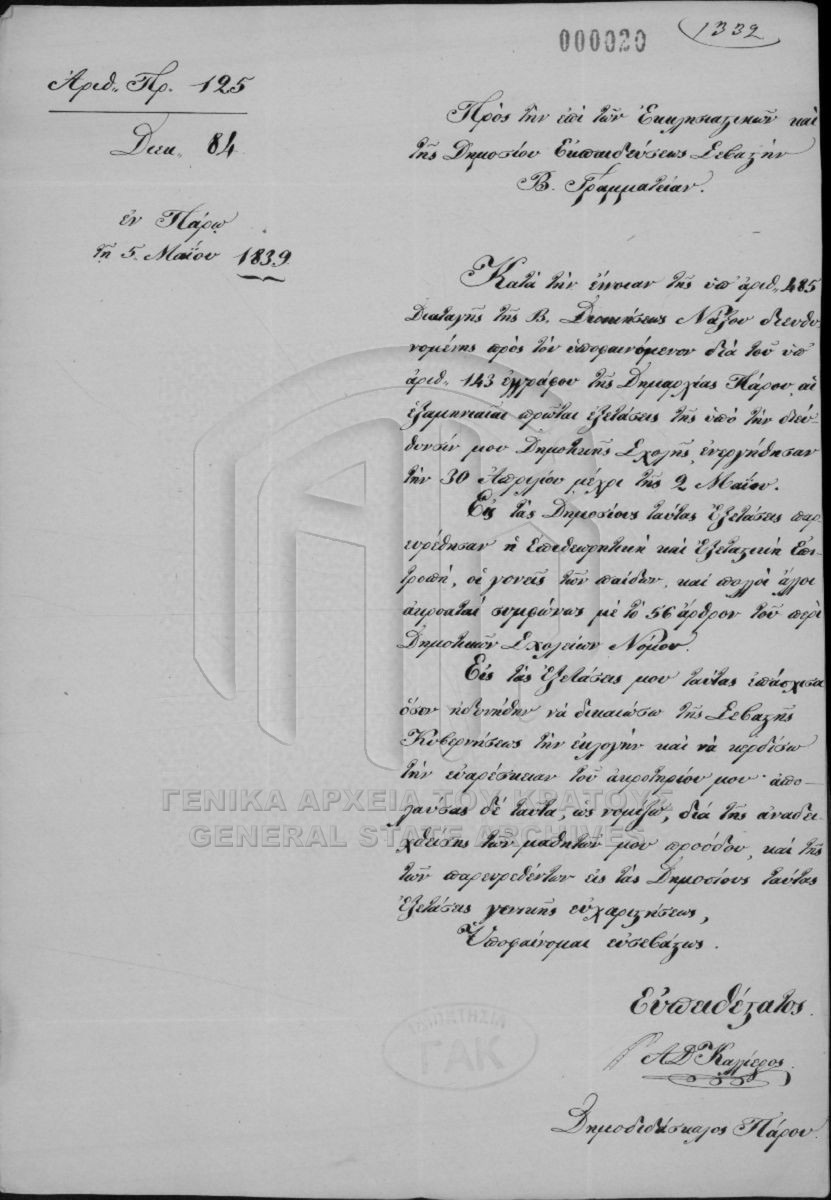 1332
000020
Ἀριθ. Πρ. 125
Διεκ. 84
ἐν Πάρῳ
τῇ 5. Μαΐου 1839
Πρὸς τὴν ἐπὶ τῶν Ἐκκλησιαστικῶν καὶ
τῆς Δημοσίου Ἐκπαιδεύσεως Σεβαστὴν
Β. Γραμματείαν.
Κατὰ τὴν ἔννοιαν τῆς ὑπ' ἀριθ. 485
Διαταγῆς τῆς Β. Διοικήσεως Νάξου διευθυ-
νομένης πρὸς τὸν ὑποφαινόμενον διὰ τοῦ ὑπ'
ἀριθ. 143 ἐγγράφου τῆς Δημαρχίας Πάρου, αἱ
ἑξαμηνιαῖαι πρῶται ἐξετάσεις τῆς ὑπὸ τὴν διεύ-
θυνσίν μου Δημοτικῆς Σχολῆς, ἐνεργήθησαν
τὴν 30 Ἀπριλίου μέχρι τῆς 2 Μαΐου.
Εἰς τὰς Δημοσίους ταύτας Ἐξετάσεις παρ-
ευρέθησαν ἡ Ἐπιθεωρητικὴ καὶ Ἐξεταστικὴ Ἐπι-
τροπή, οἱ γονεῖς τῶν παίδων, καὶ πολλοὶ ἄλλοι
ἀκροαταὶ συμφώνως μὲ τὸ 56 ἄρθρον τοῦ περὶ
Δημοτικῶν Σχολείων Νόμου.
Εἰς τὰς Ἐξετάσεις μου ταύτας ἐπάσχισα
ὅσον ἠδυνήθην νὰ δικαιώσω τῆς Σεβαστῆς
Κυβερνήσεως τὴν ἐκλογὴν καὶ νὰ κερδίσω
τὴν εὐαρέσκειαν τοῦ ἀκροατηρίου μου· ἀπο-
λαύσας δὲ ταῦτα, ὡς νομίζω, διὰ τῆς ἀναδει-
χθείσης τῶν μαθητῶν μου προόδου, καὶ τῆς
τῶν παρευρεθέντων εἰς τὰς Δημοσίους ταύτας
Ἐξετάσεις γενικῆς εὐχαριστήσεως,
Ὑποφαίνομαι εὐσεβάστως.
Εὐπειθέστατος
Δημοδιδάσκαλος Πάρου
ΓΕΝΙΚΑ ΑΡΧΕΙΑ ΤΟΥ ΚΡΑΤΟΥΣ
GENERAL STATE ARCHIVES
ΓΑΚ